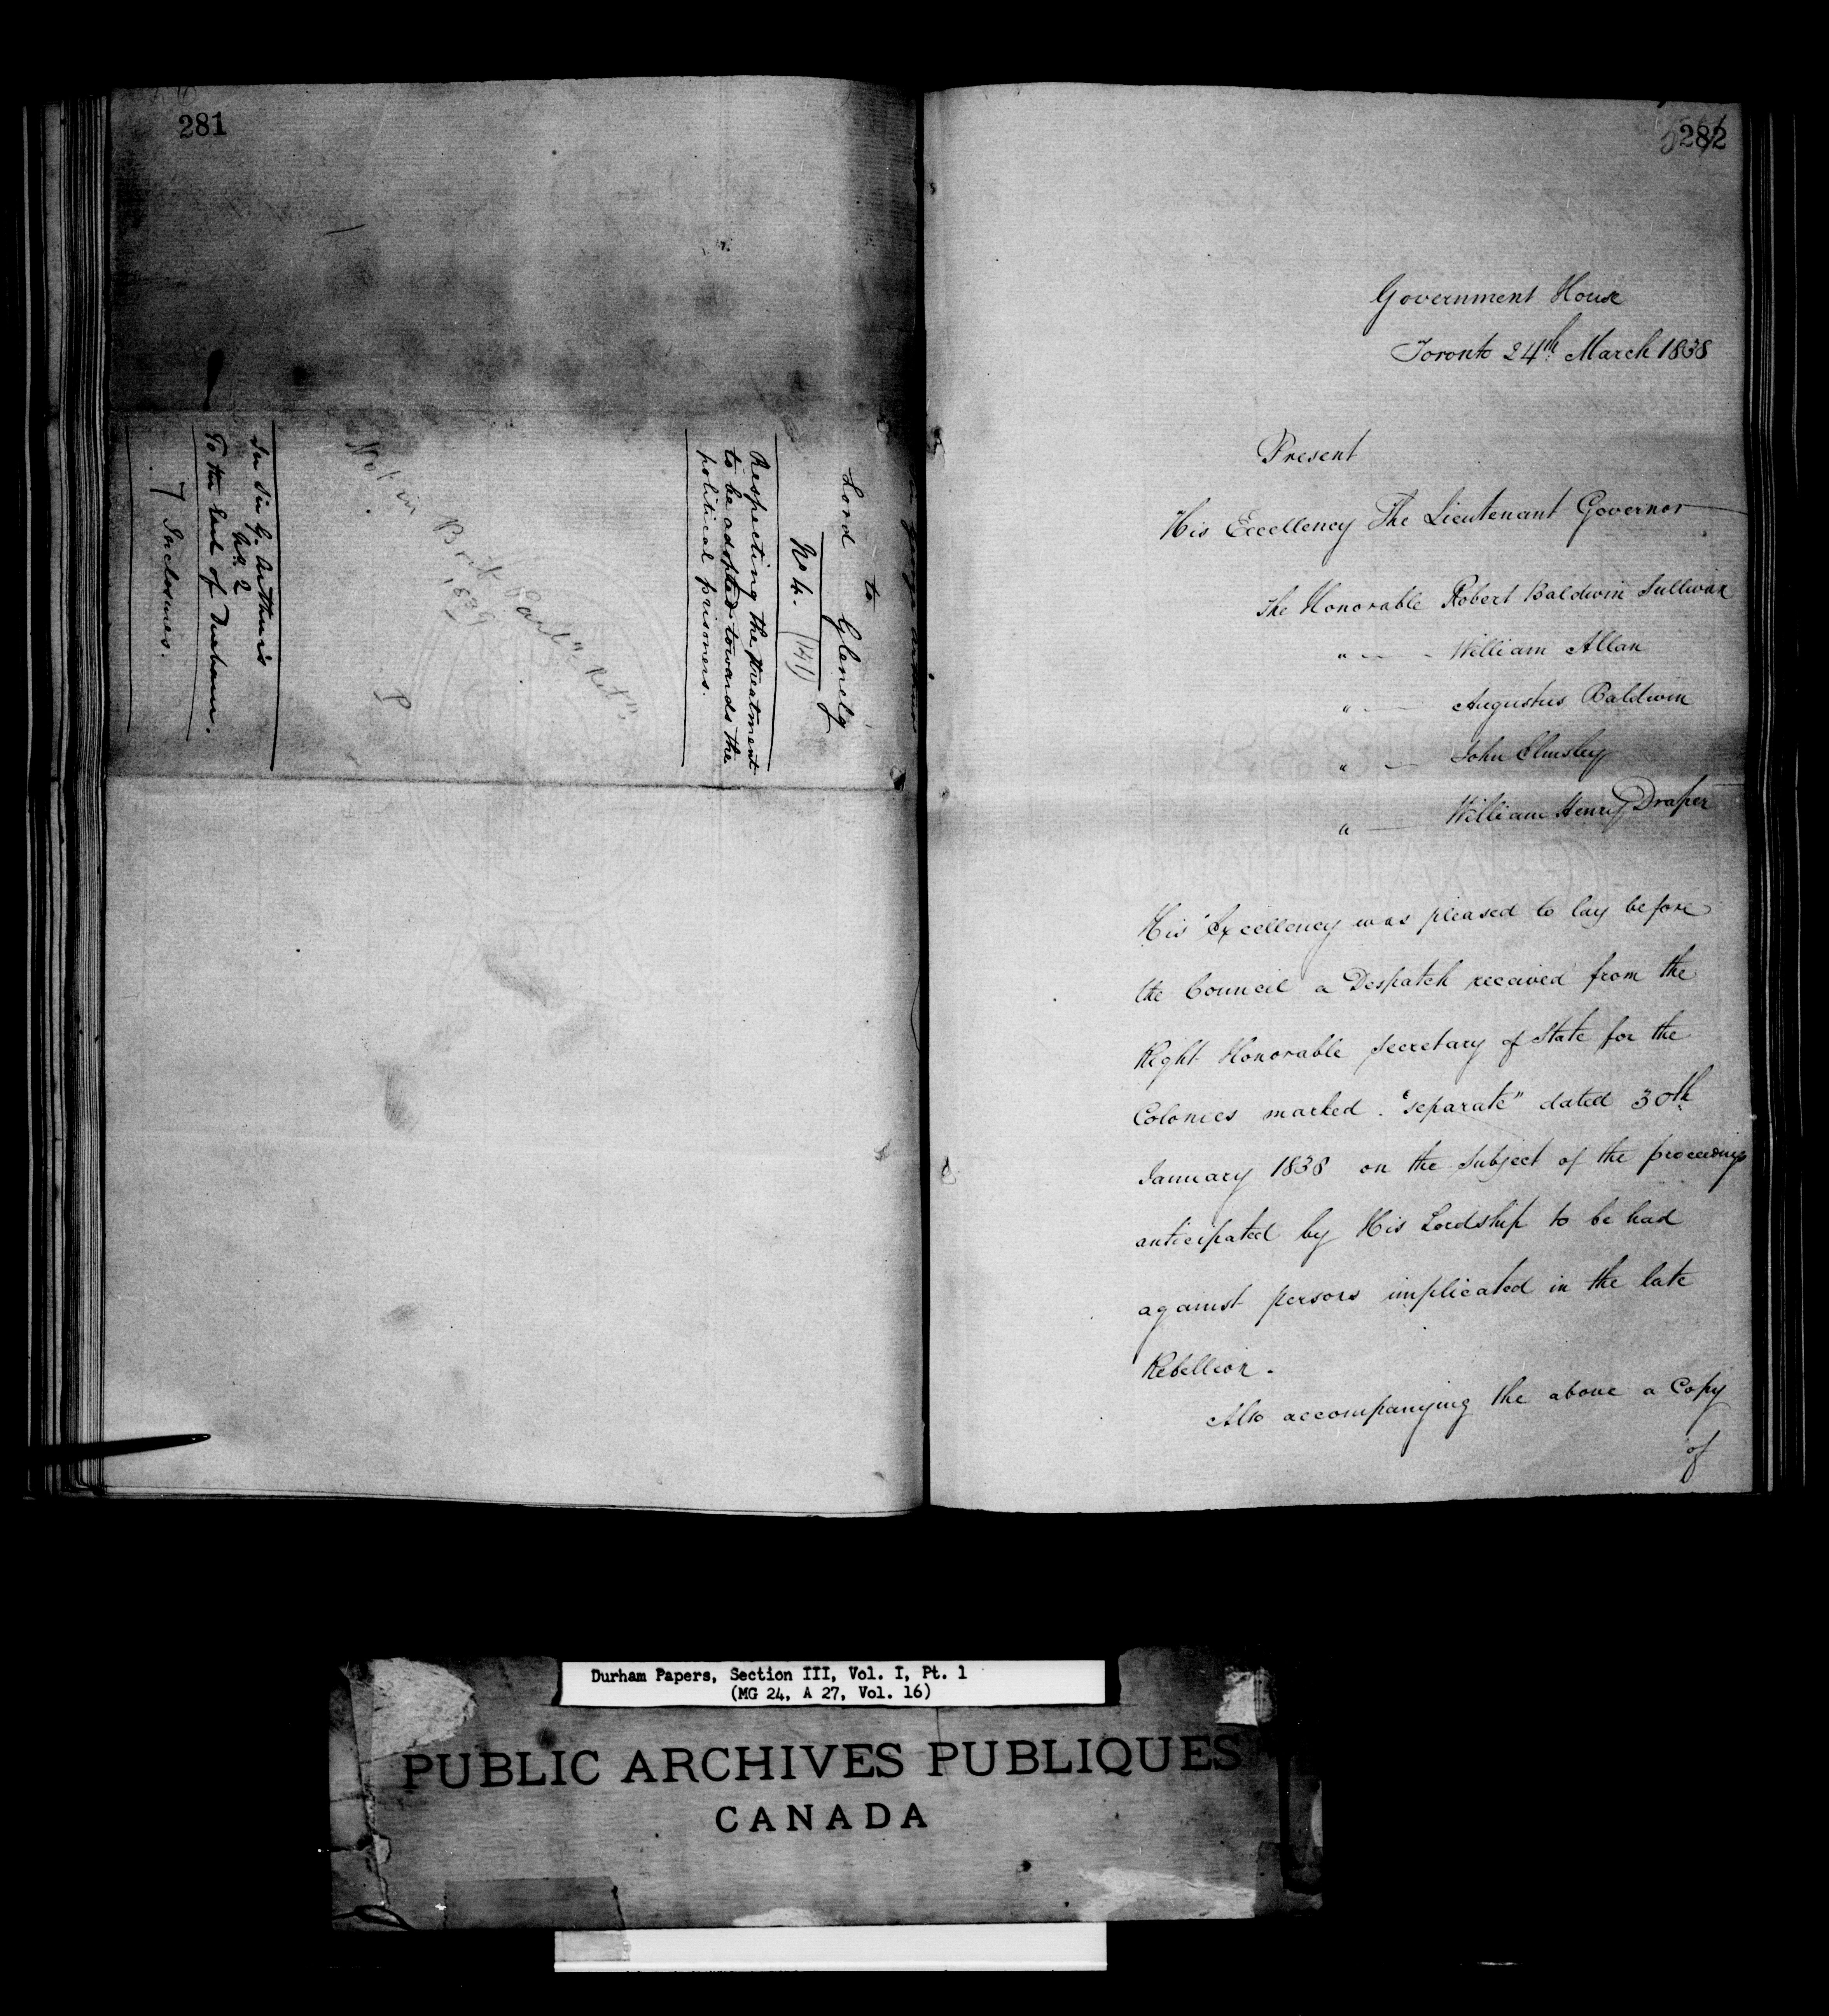 281
to
Lord Glenelg
No 4. (141)
Respecting the treatment
to be adopted towards the
political prisoners.
Not in Brit. Parl. Ret.
1839
P
In Sir G. Arthur's
No. 2
To the Earl of Durham.
7 Inclosures.
282
Government House
Toronto 24th March 1838
Present
His Excellency The Lieutenant Governor
The Honorable Robert Baldwin Sullivan
" William Allan
" Augustus Baldwin
" John Elmsley
" William Henry Draper
His Excellency was pleased to lay before
the Council a Despatch received from the
Right Honorable Secretary of State for the
Colonies marked "separate" dated 30th
January 1838 on the Subject of the proceedings
anticipated by His Lordship to be had
against persons implicated in the late
Rebellion.
Also accompanying the above a Copy
of
Durham Papers, Section III, Vol. I, Pt. 1
(MG 24, A 27, Vol. 16)
PUBLIC ARCHIVES PUBLIQUES
CANADA